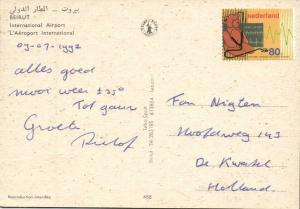 بيروت ... المطار الدولي
BEIRUT
International Airport
L'Aéroport International
03-07-1992
alles goed
mooi weer ± 35°
Tot gauw
Groeten
Roelof
Reproduction interdite
488
nederland
80
Fam Nigten
Hoofdweg 143
De Kwakel
Holland.